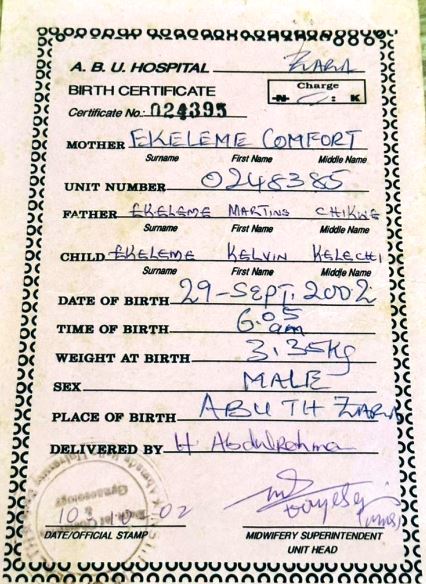 A. B. U. HOSPITAL ZARIA
BIRTH CERTIFICATE Charge
Certificate No: 024395 -N- : K
MOTHER EKELEME COMFORT
Surname First Name Middle Name
UNIT NUMBER 0248385
FATHER EKELEME MARTINS CHIKWE
Surname First Name Middle Name
CHILD EKELEME KELVIN KELECHI
Surname First Name Middle Name
DATE OF BIRTH 29-SEPT. 2002
TIME OF BIRTH 6.05 am
WEIGHT AT BIRTH 3.35kg
SEX MALE
PLACE OF BIRTH ABUTH ZARIA
DELIVERED BY H. Abdulrahma
DATE/OFFICIAL STAMP MIDWIFERY SUPERINTENDENT
UNIT HEAD